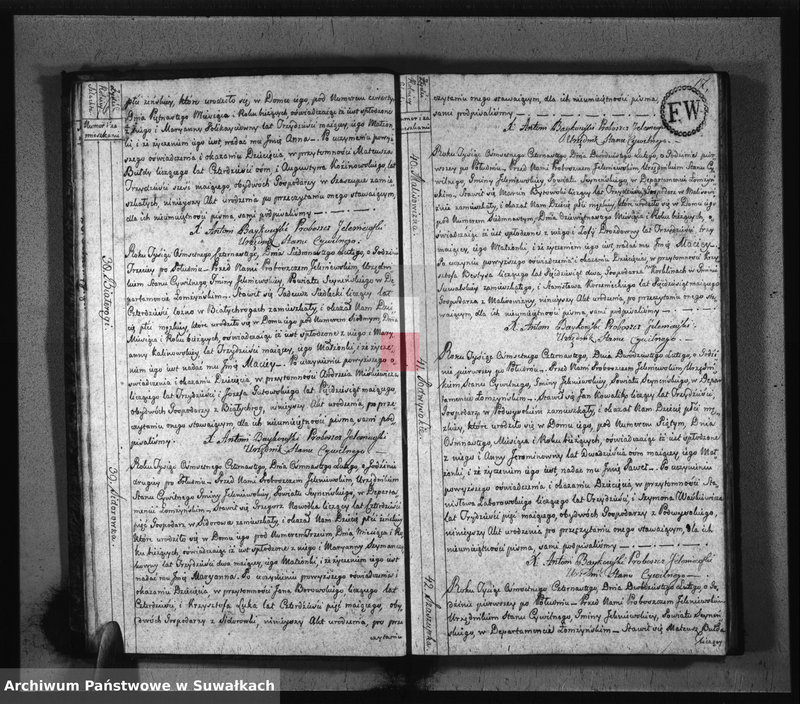 płci żeńskiej, które urodziło się, w Domu iego, pod Numerem czwartym
Dnia Miesiąca i Roku bieżących, oświadczaiąc iż iest spłodzone
z niego i Maryanny
ki, i że życzeniem iego iest nadać mu Imię Anna. Po uczynieniu powyż
szego oświadczenia i okazaniu Dziecięcia, w przytomności Mateusza
Bułdy liczącego lat Czterdzieści ośm, i Augustyna
lat Trzydzieści sześć maiącego, obydwoch Gospodarzy w Szeszupce zamie
szkałych, ninieyszy Akt urodzenia po przeczytaniu onego stawaiącym,
dla ich nieumieiętności pisma, sami podpisaliśmy
X. Antoni Baykowski Proboszcz Jeleniewski
Urzędnik Stanu Cywilnego.
39. Białorogi.
Roku Tysiąc Ośmsetnego Czternastego, Dnia Siódmego Lutego, o Godzinie
Trzeciey po Południu. Przed Nami Proboszczem Jeleniewskim, Urzędni
kiem Stanu Cywilnego, Gminy Jeleniewskiey Powiatu Seyneńskiego w De
partamencie Łomżyńskim. Stawił się Tadeusz Siedlecki liczący lat
Czterdzieści w Białychrogach zamieszkały, i okazał Nam Dziecię
płci męzkiey, które urodziło się w Domu iego pod Numerem Siódmym, Dnia
Miesiąca i Roku bieżących, oświadczaiąc iż iest spłodzone z niego i Mary
anny Kalinowskiey lat Trzydzieści maiącey, iego Małżonki, i że życze
niem iego iest nadać mu Imię Maciey. Po uczynieniu powyższego o
świadczenia i okazaniu Dziecięcia, w przytomności Andrzeia Miśkiewicza
liczącego lat Trzydzieści i Józefa Sutowskiego lat Pięćdziesiąt maiącego,
obydwóch Gospodarzy z Białychrog, ninieyszy Akt urodzenia, po prze
czytaniu onego stawaiącym, dla ich nieumieiętności pisma, sami pod
pisaliśmy.
X. Antoni Baykowski Proboszcz Jeleniewski
Urzędnik Stanu Cywilnego
39. Sidorowka.
Roku Tysiąc Ośmsetnego Czternastego, Dnia Ośmnastego Lutego, o Godzinie
drugiey po Południu. Przed Nami Proboszczem Jeleniewskim Urzędnikiem
Stanu Cywilnego Gminy Jeleniewskiey, Powiatu Seyneńskiego, w Departa
mencie Łomżyńskim, Stawił się Grzegorz Nowotka liczący lat Czterdzieści
pięć Gospodarz, w Sidorowce zamieszkały, i okazał Nam Dziecię płci żeńskiey
które urodziło się w Domu iego pod Numerem Trzecim, Dnia Miesiąca i Ro
ku bieżących, oświadczaiąc iż iest spłodzone z niego i Maryanny
lat Trzydzieści dwa maiącey, iego Małżonki, i że życzeniem iego iest
nadać mu Imię Maryanna. Po uczynieniu powyższego oświadczenia i
okazaniu Dziecięcia, w przytomności Jana Borowskiego, liczącego lat
Czterdzieści, i Krzysztofa Łuka lat Czterdzieści pięć maiącego, oby
dwóch Gospodarzy z Sidorowki, ninieyszy Akt urodzenia, po prze
czytaniu
FW
czytaniu onego stawaiącym, dla ich nieumieiętności pisma,
sami podpisaliśmy
X. Antoni Baykowski Proboszcz Jeleniewski
Urzędnik Stanu Cywilnego.
40. Malesowizna.
Roku Tysiąc Ośmsetnego Czternastego, Dnia Dwudziestego Lutego, o Godzinie pier
wszey po Południu. Przed Nami Proboszczem Jeleniewskim Urzędnikiem Stanu Cy
wilnego, Gminy Jeleniewskiey Powiatu Seyneńskiego w Departamencie Łomżyń
skim. Stawił się Marcin Bykowski liczący lat Trzydzieści Gospodarz w Malesowi
źnie zamieszkały, i okazał Nam Dziecię płci męzkiey, które urodziło się w Domu iego
pod Numerem Dnia Dziewiętnastego Miesiąca i Roku bieżących, o
świadczaiąc iż iest spłodzone z niego i Zofij Drozdowny lat Trzydzieści trzy
maiącey, iego Małżonki, i że życzeniem iego iest nadać mu Imię Maciey.
Po uczynieniu powyższego oświadczenia i okazaniu Dziecięcia, w przytomności Krzy
sztofa liczącego lat Pięćdziesiąt dwa Gospodarza w Gminie
Suwalskiey zamieszkałego, i Stanisława lat Pięćdziesiąt maiącego
Gospodarza z Malesowizny, ninieyszy Akt urodzenia, po przeczytaniu onego sta
waiącym, dla ich nieumieiętności pisma, sami podpisaliśmy
X. Antoni Baykowski Proboszcz Jeleniewski
Urzędnik Stanu Cywilnego.
Roku Tysiąc Ośmsetnego Czternastego, Dnia Dwudziestego Lutego, o Godzi
nie pierwszey po Południu. Przed Nami Proboszczem Jeleniewskim, Urzędni
kiem Stanu Cywilnego, Gminy Jeleniewskiey, Powiatu Seyneńskiego, w Depar
tamencie Łomżyńskim. Stawił się Jan Kowalski liczący lat Trzydzieści,
Gospodarz, w zamieszkały, i okazał Nam Dziecię płci mę
zkiey, które urodziło się w Domu iego, pod Numerem Piątym, Dnia
Ośmnastego Miesiąca i Roku bieżących, oświadczaiąc iż iest spłodzone
z niego i Anny Jerominowny lat Dwadzieścia ośm maiącey iego Mał
żonki, i że życzeniem iego iest, nadać mu Imię Paweł. Po uczynieniu
powyższego oświadczenia i okazaniu Dziecięcia, w przytomności Sta
nisława Zaborowskiego liczącego lat Trzydzieści, i Szymona Waśkiewicza
lat Trzydzieści pięć maiącego, obydwóch Gospodarzy z
ninieyszy Akt urodzenia po przeczytaniu onego stawaiącym, dla ich
nieumieiętności pisma, sami podpisaliśmy
X. Antoni Baykowski Proboszcz Jeleniewski
Urzędnik Stanu Cywilnego
42. Szeszupka.
Roku Tysiąc Ośmsetnego Czternastego, Dnia Dwudziestego Lutego, o Go
dzinie pierwszey po Południu. Przed Nami Proboszczem Jeleniewskim
Urzędnikiem Stanu Cywilnego, Gminy Jeleniewskiey, Powiatu Seyneń
skiego, w Departamencie Łomżyńskim. Stawił się Mateusz Bułda
liczący
Archiwum Państwowe w Suwałkach